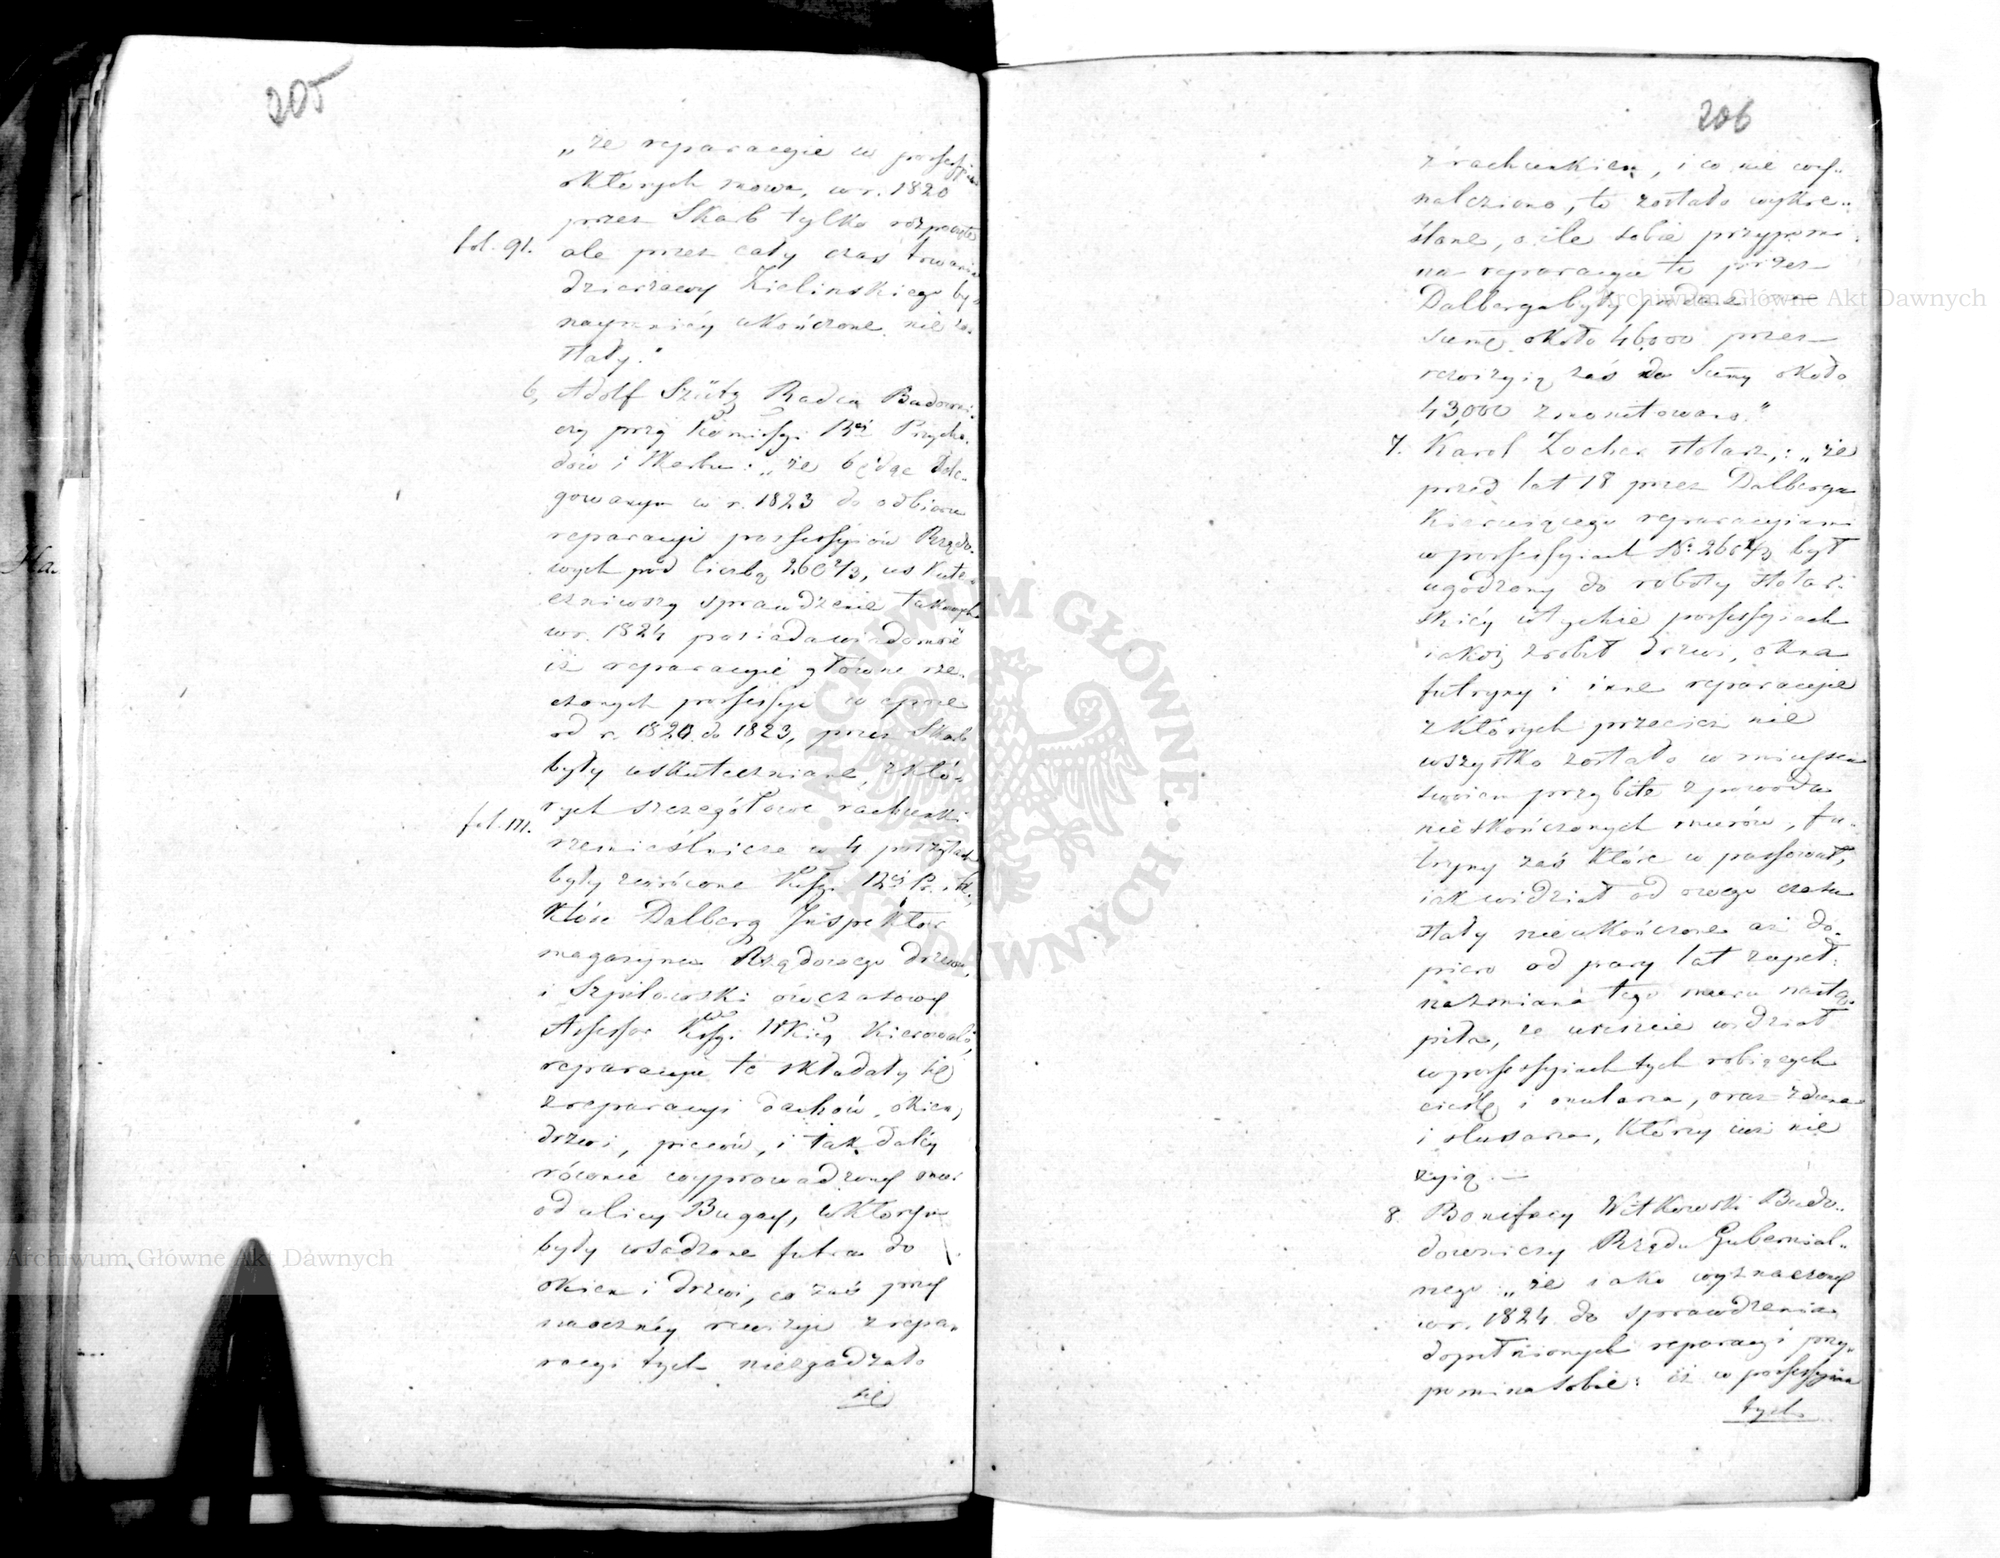 205
„że reparacyie w possessyiach
o których mowa, w r. 1820
przez Skarb tylko rozpoczęte
fol. 91. ale przez cały czas trwania
dzierzawy Zielinskiego by
naymniéy ukończone nie zo-
stały."
6, Adolf Szütz Radca Budowni-
czy przy Kommissyi Rd Przycho-
dów i Skarbu: „że będąc dele-
gowanym w r. 1823 do odbioru
reparacyi possessyiów Rządo-
wych pod liczbą 260 2/3, uskute-
czniwszy sprawdzenie takowych
w r. 1824 posiada wiadomość
iż reparacyie główne rze-
czonych possessyi w epoce
od r. 1820 do 1823, przez Skarb
były uskutecznione, z któ-
rych szczegółowe rachunki
fol. 111. rzemieślnicze w 4 poszytach
były zwrócone Kssyi Rd P. i Sk.,
które Dalberg Inspektor
magazynu Rządowego drzewa,
i Szpilowski ówczasowy
Assessor Kssyi Wkiéy kierowali,
reparacyie te składały się
z reparacyi dachów, okien,
drzwi, pieców, i tak daléy
równie wyprowadzony mur
od ulicy Bugay, w którym
były wsadzone futra do
okien i drzwi, co zaś przy
naoczney rewizyi z repa-
racyi tych niezgadzało
się
206
z rachunkiem, i co nie wy-
nalcziono, to zostało wykre-
ślone, o ile sobie przypomi
na reparacyie te przez
Dalberga były podane
summę około 46000 przez
rewizyią zaś do Summy około
43,000 zmonitowano."
7. Karol Locher stolarz,: „że
przed lat 18 przez Dalberga
kieruiącego reparacyiami
w possessyiach No 260 2/3 był
ugodzony do roboty stolar-
skiéy w tychże possessyiach
iakoż zrobił drzwi, okna
futryny i inne reparacyie
z których przecież nie
wszystko zostało w mieyscu
swoiem przybite z powodu
nieskończonych murów, fu-
tryny zaś które w passował,
iak widział od owego czasu
stały nieukończone aż do-
piero od pary lat zupeł-
na zmiana tego muru nastą-
piła, że wreszcie widział
w possessyiach tych robiących
cieślę i mularza, oraz zduna
i slusarza, którzy iuż nie
żyią. —
8. Bonifacy Witkowski Budo-
wniczy Rządu Gubernial-
nego: „że iako wyznaczony
w r. 1824 do sprawdzenia
dopełnionych reparacyi przy-
pomina sobie: iż w possessyiach
tych
Archiwum Główne Akt Dawnych
Archiwum Główne Akt Dawnych
ARCHIWUM GŁÓWNE · AKT DAWNYCH ·